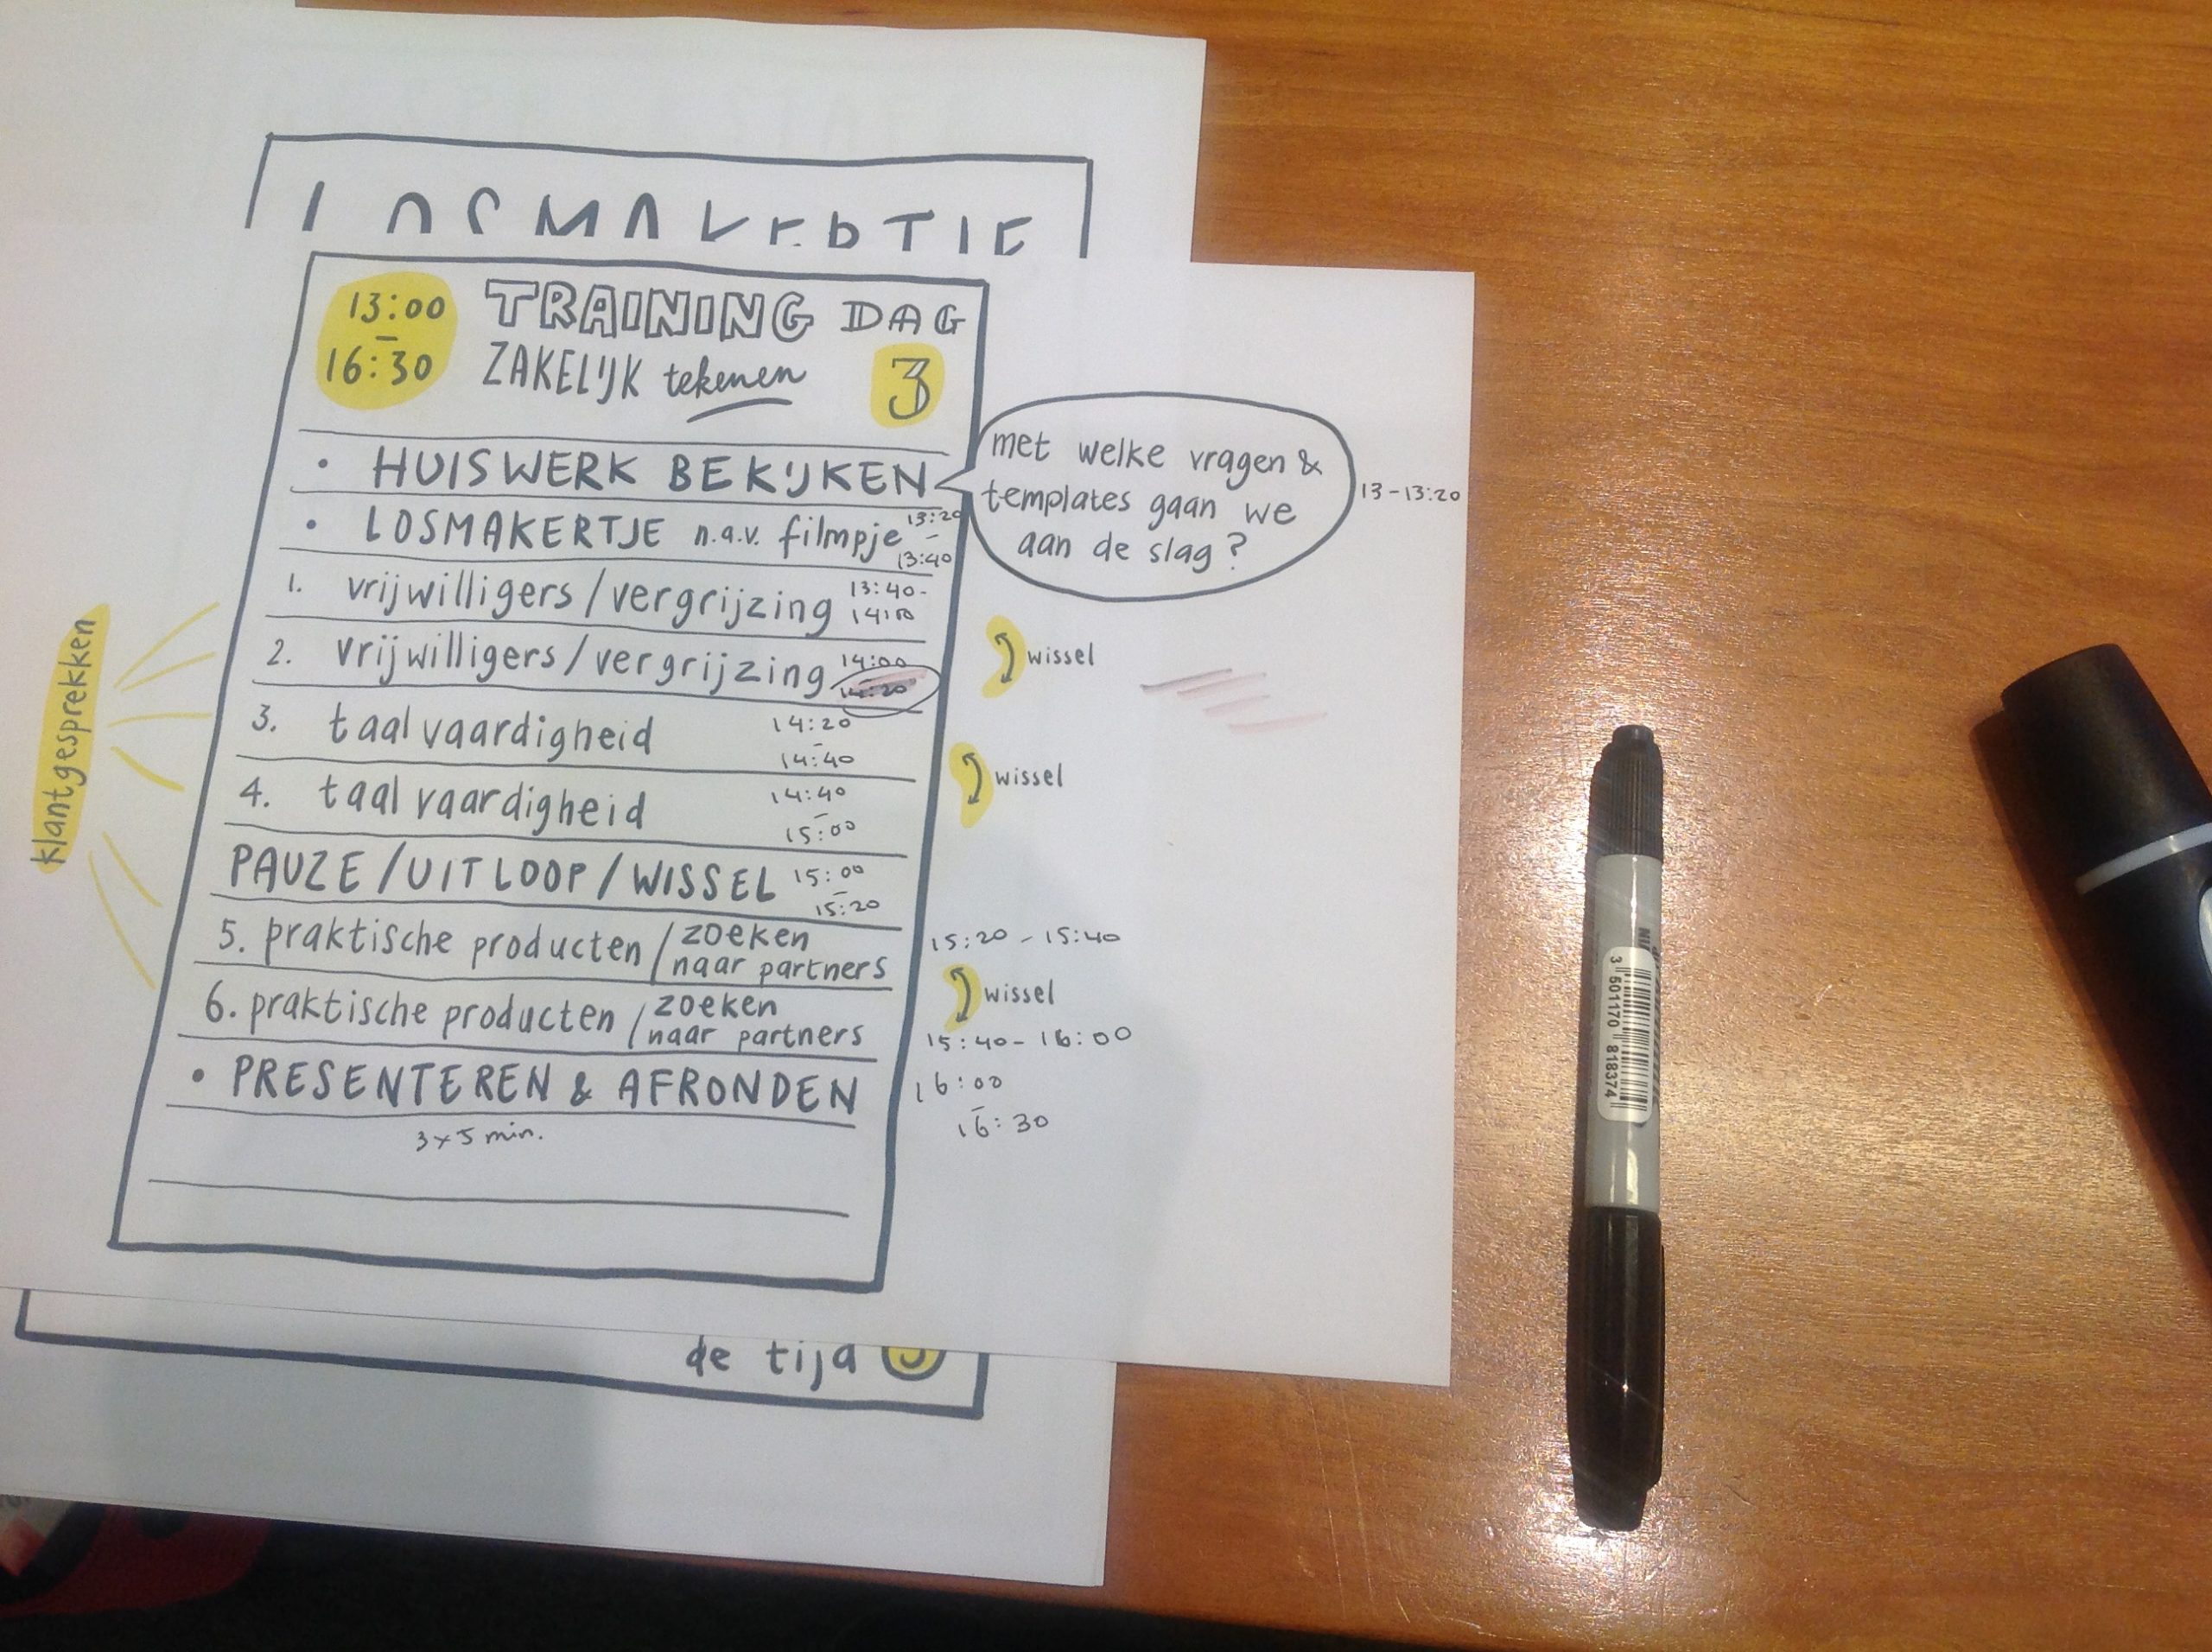 LOSMAKERTJE
13:00
–
16:30
TRAINING DAG
ZAKELIJK tekenen 3
• HUISWERK BEKIJKEN
met welke vragen &
templates gaan we
aan de slag?
13-13:20
• LOSMAKERTJE n.a.v. filmpje 13:20
–
13:40
1. vrijwilligers/vergrijzing 13:40-
14:00
2. vrijwilligers/vergrijzing 14:00
14:20
wissel
3. taalvaardigheid 14:20
–
14:40
4. taalvaardigheid 14:40
–
15:00
wissel
PAUZE/UITLOOP/WISSEL 15:00
–
15:20
5. praktische producten/zoeken
naar partners
15:20 - 15:40
wissel
6. praktische producten/zoeken
naar partners
15:40 - 16:00
• PRESENTEREN & AFRONDEN 16:00
–
16:30
3x5 min.
klantgesprekken
de tijd
3 501170 818374